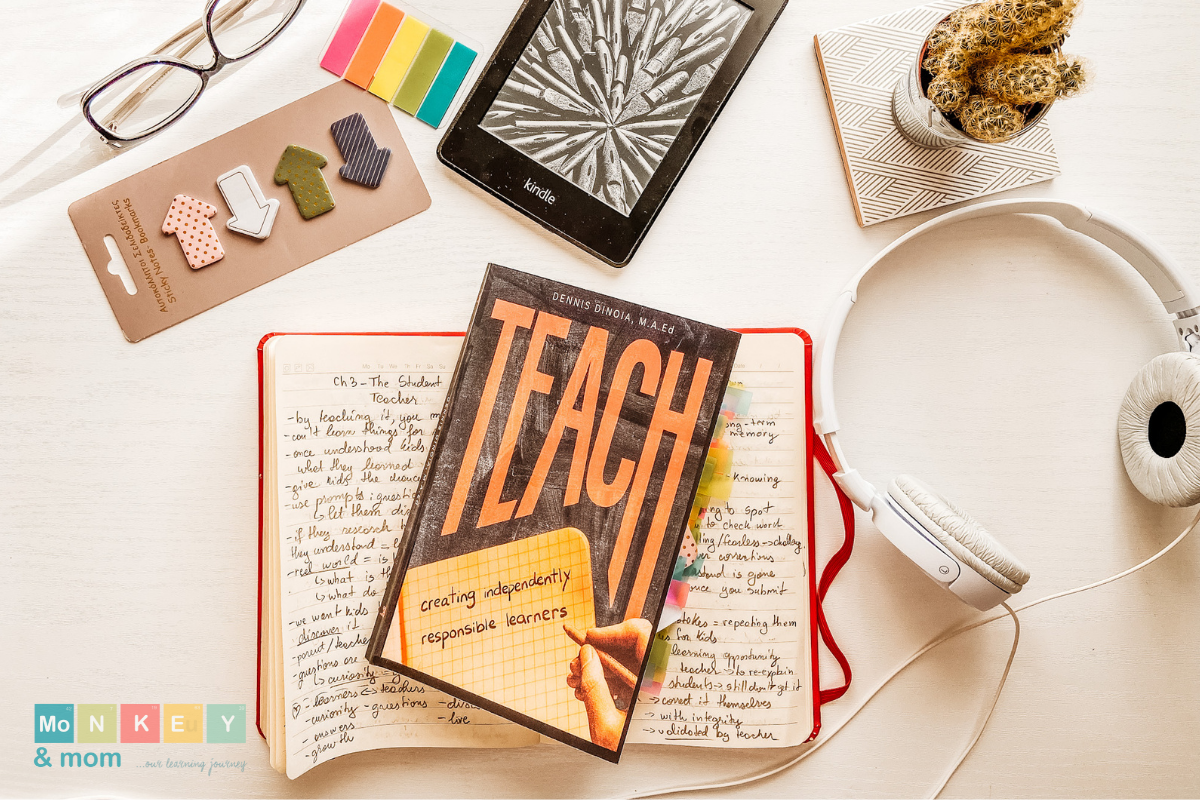 kindle
Αυτοκόλλητοι Σελιδοδείκτες
Sticky Notes Bookmarks
DENNIS DINOIA, M.A.Ed
TEACH
creating independently
responsible learners
Ch 3 - The Student
Teacher
- by teaching it, you
- can't learn things for
- once understood kids
what they learned
- give kids the
- use prompts: 
↳ let them
- if they research
they understand =
- real world = is
↳ what is
↳ what do
- we want kids
discover it
- parent/teacher
- questions are
↳ curiosity
- learners ↔ teachers
- curiosity - questions
- answers
- live
long-term
memory
knowing
to spot
to check word
ling/fearless → challeg.
corrections
is gone
once you submit
= repeating them
for kids
learning opportunity
teacher → to re-explain
students → still don't get it
→ correct it themselves
→ with integrity
→ validated by teacher
MoNKEY
& mom
...our learning journey